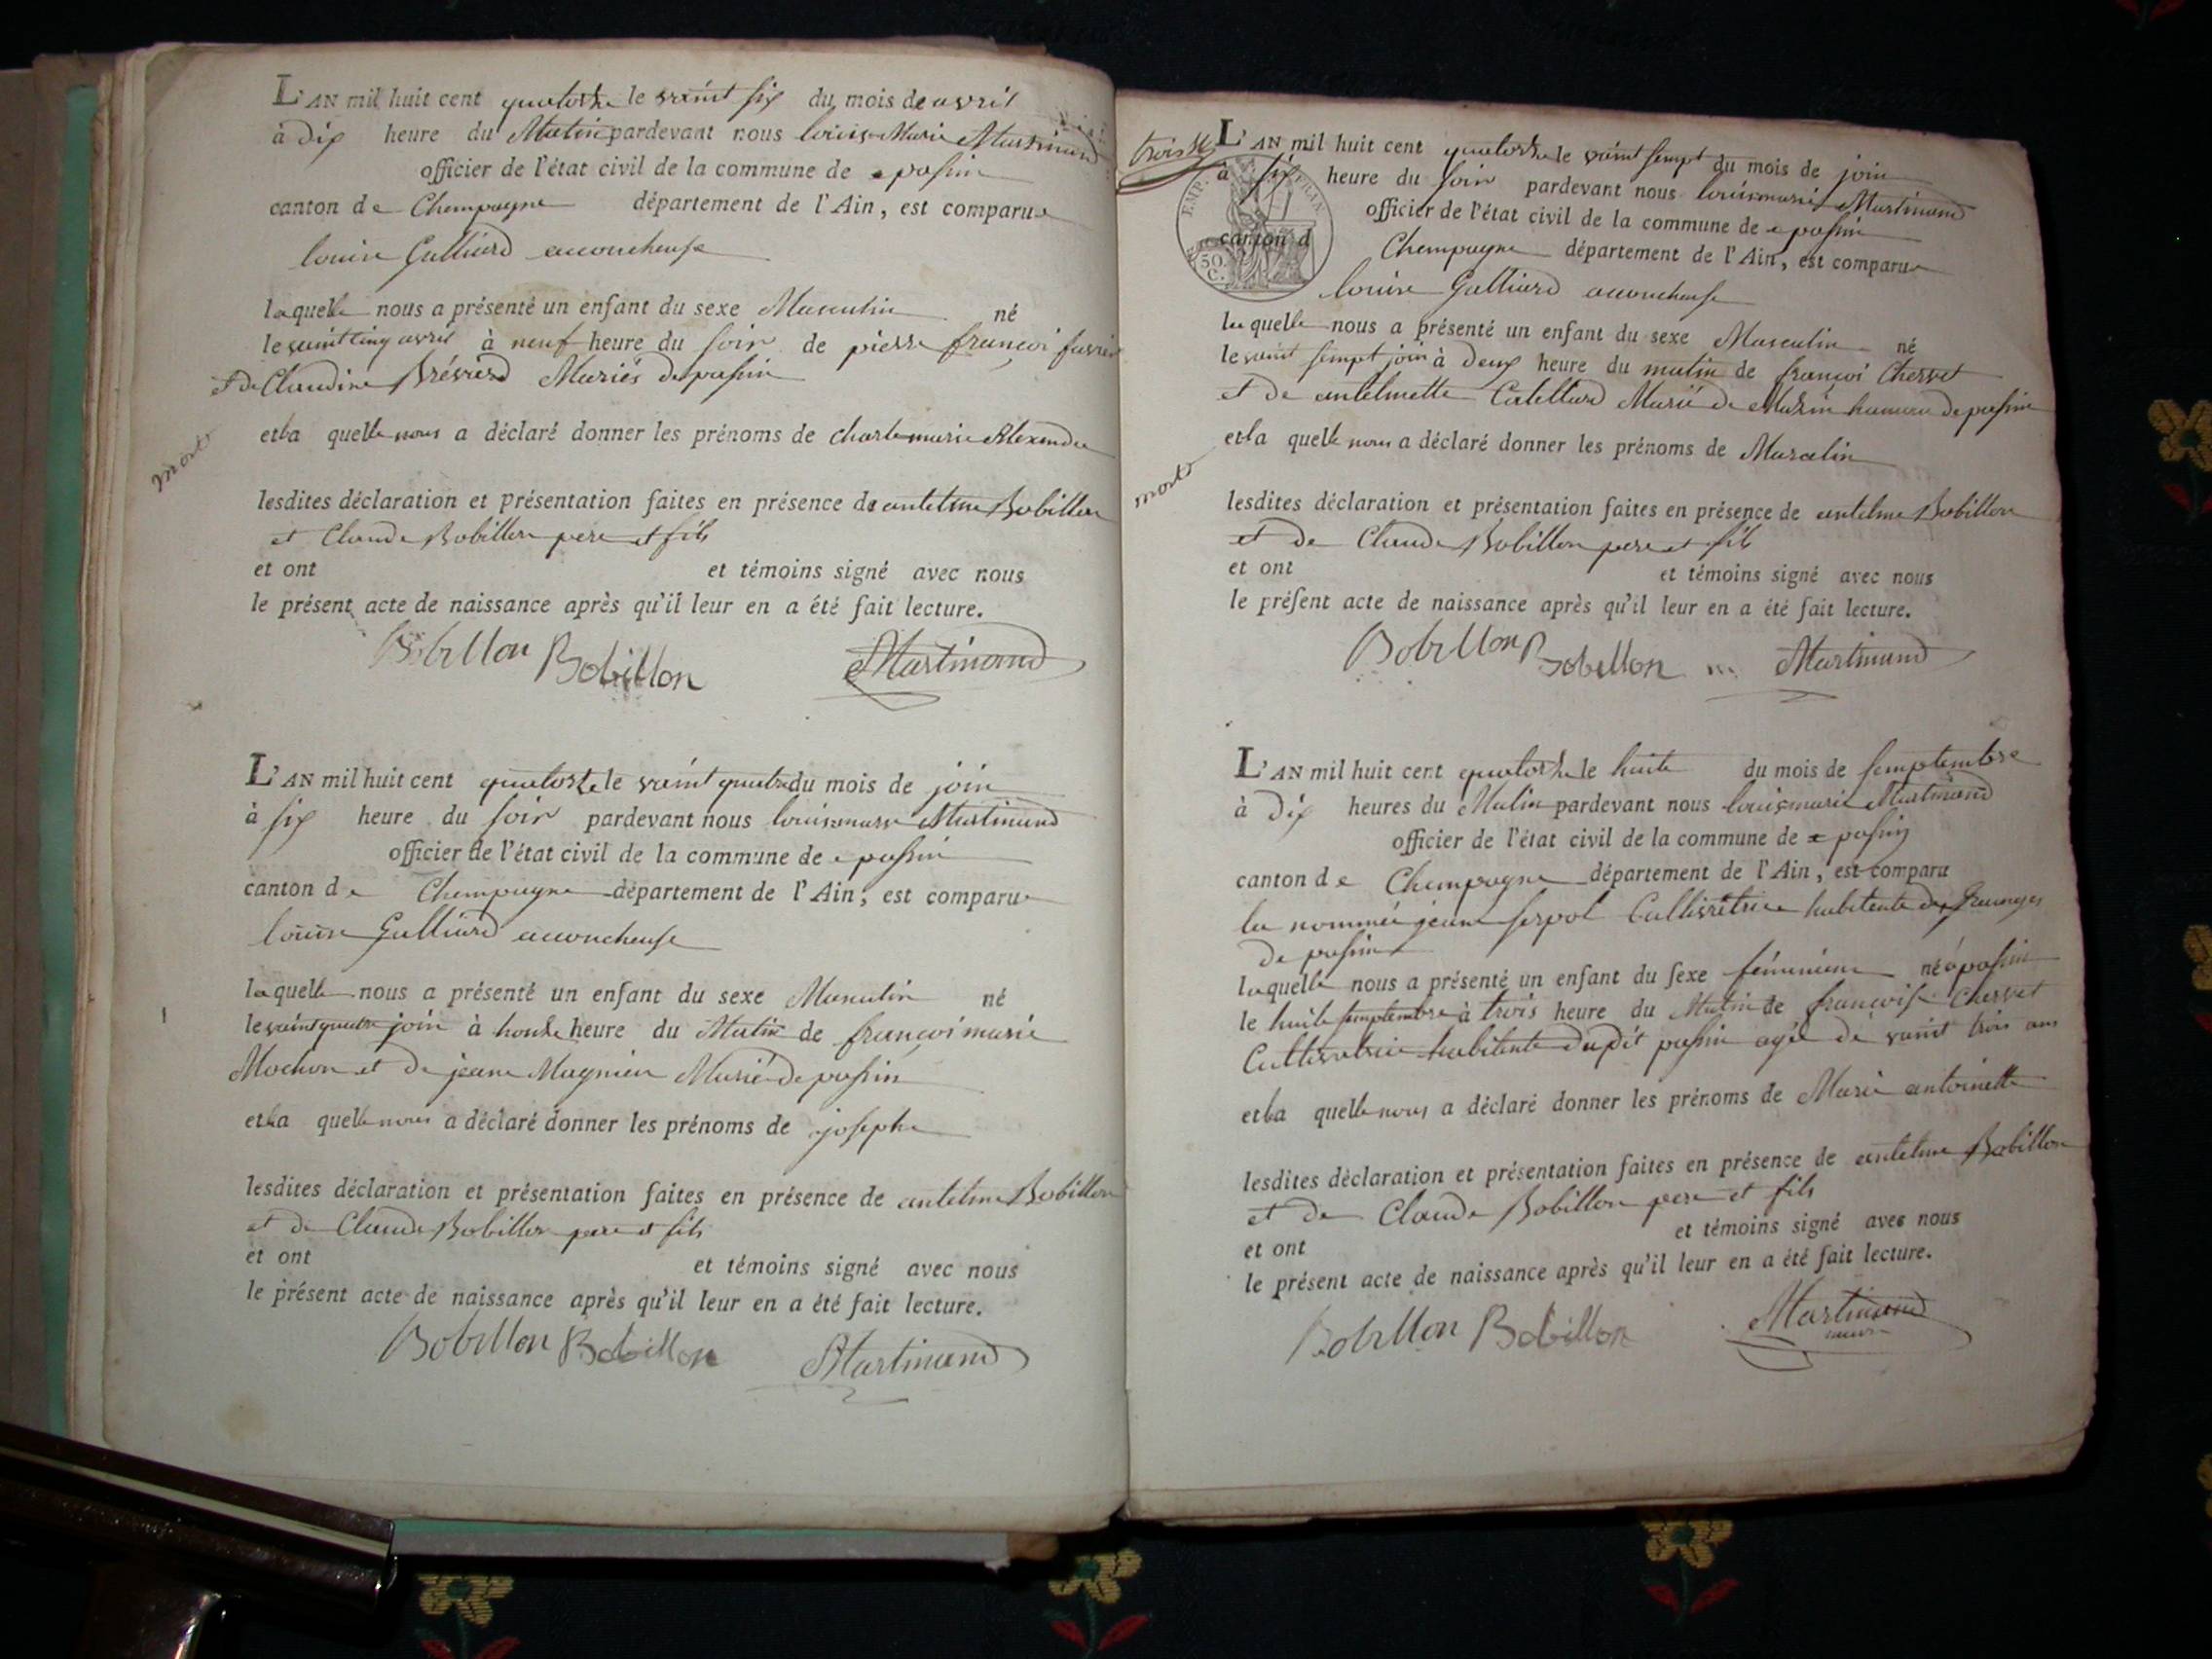 L'AN mil huit cent quatorze le vaint six du mois de avril
à dix heure du Matin pardevant nous louis Marie Martinand
officier de l'état civil de la commune de passin
canton de Champagne département de l'Ain, est comparue
louise Galliard acoucheuse
laquelle nous a présenté un enfant du sexe Masculin né
le vaint cinq avril à neuf heure du soir de pierre françoi favrier
et de Claudine Brévard Mariés de passin
et la quelle nous a déclaré donner les prénoms de charle marie Alexandre
mort
lesdites déclaration et présentation faites en présence de antelme Bobillon
et Claude Bobillon pere et fils
et ont et témoins signé avec nous
le présent acte de naissance après qu'il leur en a été fait lecture.
Bobillon Bobillon Martinand
L'AN mil huit cent quatorze le vaint quatre du mois de join
à six heure du soir pardevant nous louis marie Martinand
officier de l'état civil de la commune de passin
canton de Champagne département de l'Ain, est comparue
louise Galliard acoucheuse
laquelle nous a présenté un enfant du sexe Masculin né
le vaint quatre join à honze heure du Matin de françoi marie
Mochon et de jeane Magnien Marié de passin
et la quelle nous a déclaré donner les prénoms de josephe
lesdites déclaration et présentation faites en présence de antelme Bobillon
et de Claude Bobillon pere et fils
et ont et témoins signé avec nous
le présent acte de naissance après qu'il leur en a été fait lecture.
Bobillon Bobillon Martinand
trois
L'AN mil huit cent quatorze le vaint sempt du mois de join
à six heure du soir pardevant nous louis marie Martinand
EMP. FRAN
50
C.
officier de l'état civil de la commune de passin
canton d Champagne département de l'Ain, est comparue
louise Galliard acoucheuse
laquelle nous a présenté un enfant du sexe Masculin né
le vaint sempt join à deux heure du matin de françoi Chervet
et de antelmette Catelland Marié de hameau de passin
et la quelle nous a déclaré donner les prénoms de Marcelin
mort
lesdites déclaration et présentation faites en présence de antelme Bobillon
et de Claude Bobillon pere et fils
et ont et témoins signé avec nous
le présent acte de naissance après qu'il leur en a été fait lecture.
Bobillon Bobillon Martinand
L'AN mil huit cent quatorze le huite du mois de semptembre
à dix heures du Matin pardevant nous louis marie Martinand
officier de l'état civil de la commune de passin
canton de Champagne département de l'Ain, est comparu
la nommée jeane serpol Cultivatrice habitente des Granges
de passin
laquelle nous a présenté un enfant du sexe féminine né à passin
le huite semptembre à trois heure du Matin de françoise Chervet
Cultivatrice habitente dudit passin agée de vaint trois ans
et la quelle nous a déclaré donner les prénoms de Marie antoinette
lesdites déclaration et présentation faites en présence de antelme Bobillon
et de Claude Bobillon pere et fils
et ont et témoins signé avec nous
le présent acte de naissance après qu'il leur en a été fait lecture.
Bobillon Bobillon Martinand
maire